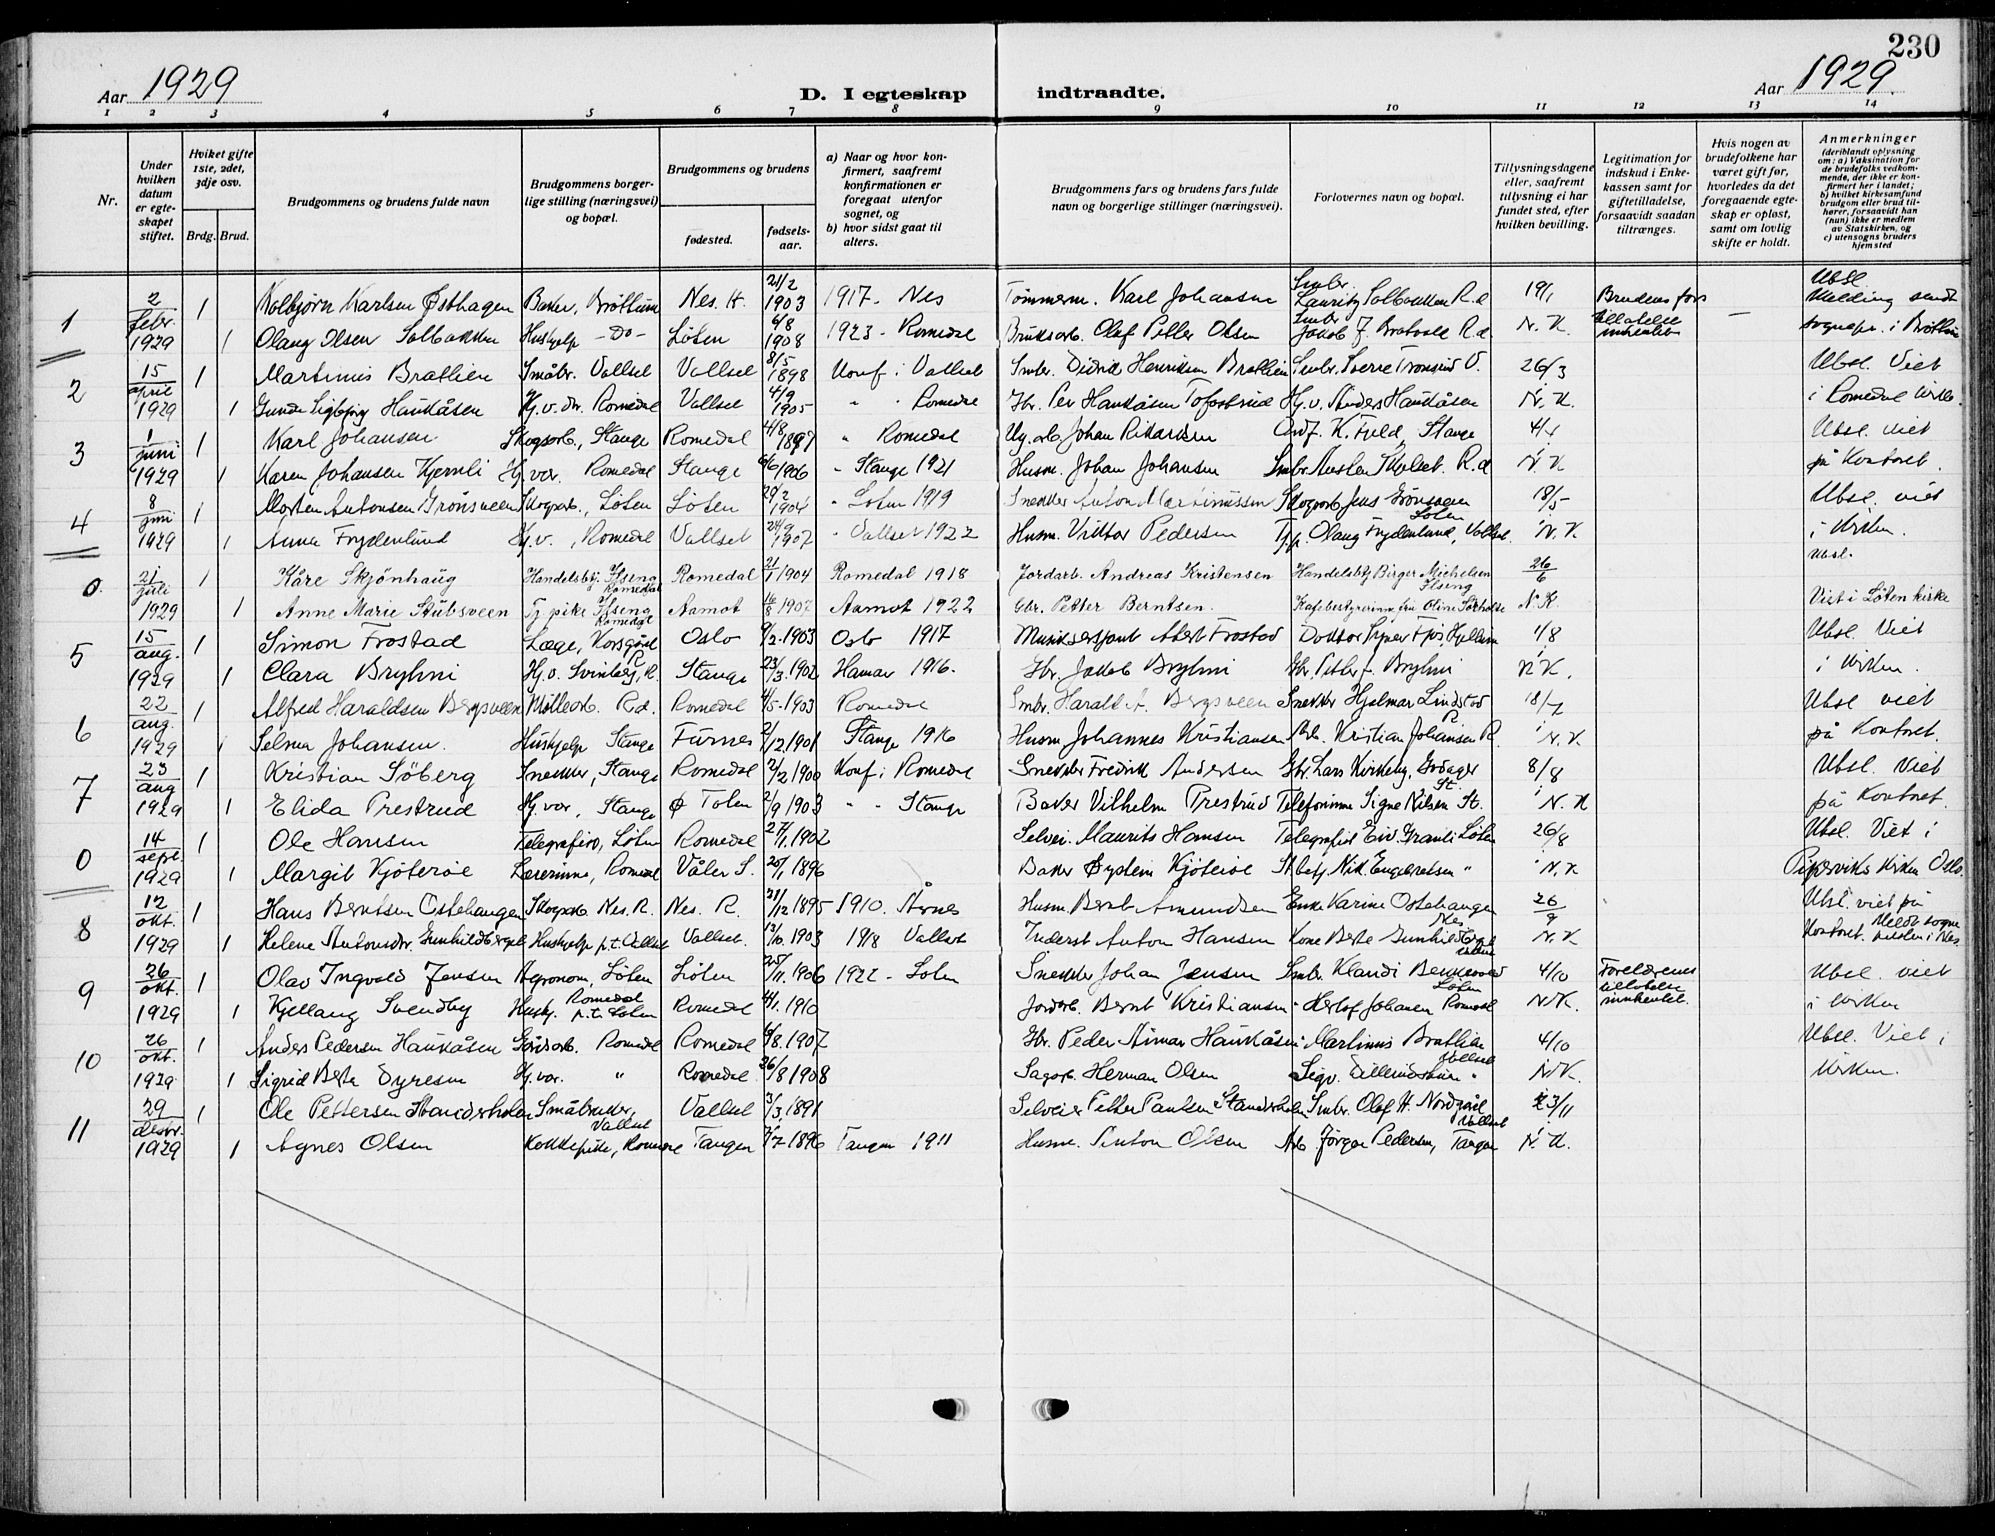 230
Aar 1929 D. I egteskap indtraadte. Aar 1929.
1 2 3 4 5 6 7 8 9 10 11 12 13 14
Nr.
Under hvilken datum er egteskapet stiftet.
Hviket gifte 1ste, 2det, 3dje osv.
Brdg. Brud.
Brudgommens og brudens fulde navn
Brudgommens borgerlige stilling (næringsvei) og bopæl.
Brudgommens og brudens
fødested. fødselsaar.
a) Naar og hvor konfirmert, saafremt konfirmationen er foregaat utenfor sognet, og
b) hvor sidst gaat til alters.
Brudgommens fars og brudens fars fulde navn og borgerlige stillinger (næringsvei).
Forlovernes navn og bopæl.
Tillysningsdagene eller, saafremt tillysning ei har fundet sted, efter hvilken bevilling.
Legitimation for indskud i Enkekassen samt for giftetilladelse, forsaavidt saadan tiltrænges.
Hvis nogen av brudefolkene har været gift før, hvorledes da det foregaaende egteskap er opløst, samt om lovlig skifte er holdt.
Anmerkninger (deriblandt oplysning om: a) Vaksination for de brudefolks vedkommende, der ikke er konfirmert her i landet; b) hvilket kirkesamfund brudgom eller brud tilhører, forsaavidt han (hun) ikke er medlem av Statskirken, og c) utensogns bruders hjemsted
1 2/febr. 1929 1 Kolbjørn Karlsen Østhagen Baker, Brøttum Nes. H. 21/2 1903 1917 - Nes Tømmerm. Karl Johansen Smbr. Lauritz Solbakken R.d 19/1 Brudens fars Ubsl. Melding sendt
1 Olaug Olsen Solbakken Hushjelp - Do - Løten 6/8 1908 1923 - Romedal Bruksarb. Olaf Petter Olsen Smbr Jakob J. Bratvold R.d. N. K. tillatelse innhentet — sognepr. i Brøttum
2 15/april 1929 1 Martinus Bratlien Småbr. Vallset Vallset 8/5 1898 Konf i Vallset Smbr. Didrik Henriksen Bratlien Smbr. Sverre Tronsrud V. 26/3 Ubsl. Viet
1 Gunda Sigbjørg Haukåsen Hj.v. dr. Romedal Vallset 4/9 1905 " " Romedal Gbr. Per Haukåsen Tofastrud Hj.v. Anders Haukåsen N. K. i Romedal kirke.
3 1/juni 1929 1 Karl Johansen Skogsarb., Stange Romedal 4/8 1897 " Romedal Ug. arb. Johan Rikardsen Ordf. K. Fjeld, Stange 4/4 Ubsl. viet
1 Karen Johansen Kjernli Hj.vær. Romedal Stange 6/6 1906 " Stange 1921 Husm. Johan Johansen Smbr. Austen Tholset. R.d N. K på Kontoret.
4 8/juni 1929 1 Morten Antonsen Grønsveen Skogsarb., Løten Løten 29/2 1904 " Løten 1919 Snekker Anton Martinussen Skogsarb. Jens Grønsveen Løten 18/5 Ubsl. viet
1 Anna Frydenlund Hj.v., Romedal Vallset 24/9 1907 " Vallset 1922 Husm. Viktor Pedersen Tj.p. Olaug Frydenlund, Vallset N. K. i Kirken.
0. 21/juli 1929 1 Kåre Skjønhaug Handelsbtj. Ilseng Romedal Romedal 21/1 1904 Romedal 1918 Jordarb. Andreas Kristensen Handelsbtj Birger Michelsen Ilseng 26/6 Ubsl.
1 Anne Marie Stubsveen Tj.pike Ilseng Romedal Aamot 16/8 1907 Aamot 1922 Gbr. Petter Berntsen. Kafebestyrerinne fru Oline Sørholte N. K. Viet i Løten kirke
5 15/aug. 1929 1 Simon Frostad Læge, Korsgård R. Oslo 9/2 1903 Oslo 1917 Musiksersjant Albert Frostad Doktor 1/8 Ubsl. Viet
1 Clara Bryhni Hj.v. Svinberg, R. Stange 23/3. 1902 Hamar 1916. Gbr. Jakob Bryhni Gbr. Petter J. Bryhni N. K. i Kirken.
6 22/aug. 1929 1 Alfred Haraldsen Bergsveen Møllearb. R.d. Romedal 4/5-1903 Romedal Smbr. Harald A. Bergsveen Snekker Hjelmar Lindstad 18/7 Ubsl viet
1 Selma Johansen. Hushjelp Stange Furnes 2/12 1901 Stange 1916 Husm Johannes Kristiansen Arb. Kristian Johansen R. N. K. på Kontoret.
7 23/aug 1929 1 Kristian Søberg Snekker, Stange Romedal 2/2 1900 Konf i Romedal Snekker Fredrik Andersen Gbr. Lars Kirkeby, Godager St. 8/8 Ubsl. Viet
1 Elida Prestrud Hj.vær, Stange Ø Toten 2/9 1903 " " Stange Baker Vilhelm Prestrud Telefoninne Signe Nilsen St. N. K på Kontoret.
0 14/sept. 1929 1 Ole Hansen Telegrafierv, Løten Romedal 27/1. 1902 Selvei. Maurits Hansen Telegrafist Eiv. Granli Løten 26/8 Ubsl. Viet i
1 Margit Kjøterøe Lærerinne, Romedal Våler S. 20/1 1896 Baker Øystein Kjøterøe St.betj. Nik. Engebretsen " N. K Pipervika kirken Oslo.
8 12/okt. 1929 1 Hans Berntsen Ostehaugen Skogsarb. Nes. R. Nes. R. 21/12 1895 1910. Årnes Husm Bernt Amundsen Enke Karine Ostehaugen Nes 26/9 Ubsl. viet på
1 Helene Antonsdtr. Gunhildberget Hushjelp p.t. Vallset Vallset. 13/10. 1903 1918 Vallset Inderst Anton Hansen Kone Berte Gunhildberget Vallset N. K Kontoret. Meldt sognepresten i Nes
9 26/okt. 1929 1 Olav Ingvald Jensen Agronom, Løten Løten 25/11. 1906 1922 - Løten Snekker Johan Jensen Smbr. Klandi Løten 4/10 Foreldrenes Ubsl. viet
1 Kjellaug Svendby Hushj. Romedal p.t. Løten Romedal 4/1. 1910 Jordarb. Bernt Kristiansen " Herlof Johansen Romedal N. K. tillatelse innhentet. i Kirken
10 26/okt. 1929 1 Anders Pedersen Haukåsen Gårdsarb. Romedal Romedal 6/8. 1907 Gbr. Peder Aimar Haukåsen " Martinus Bratlien Vallset 4/10 Ubsl. Viet i
1 Sigrid Berte Dyresen Hj.vær. " Romedal 26/8 1908 Sagarb. Herman Olsen Sigv. Dillerudstuen " N. K. Kirken.
11 29/desbr. 1929 1 Ole Pettersen Standerholen Småbruker, Vallset Vallset 3/3 1891 Selveier Petter Paulsen Standerholen Smbr. Olaf H. Nordgård Vallset 23/11
1 Agnes Olsen Kokkepike, Romedal Tangen 7/7 1896 Tangen 1911 Husm. Anton Olsen Arb Jørgen Pedersen, Tangen N. K.